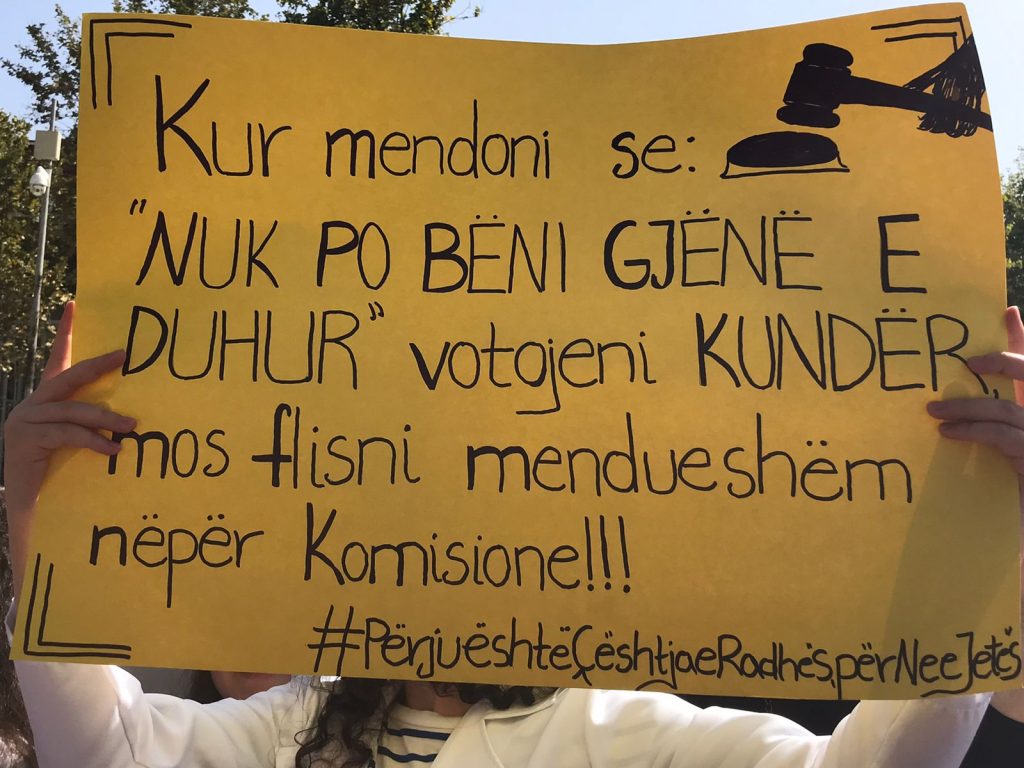 Kur mendoni se:
"NUK PO BËNI GJËNË E
DUHUR" votojeni KUNDËR,
mos flisni mendueshëm
nëpër Komisione!!!
#PërjuështëÇështjaeRadhës,përNeeJetës